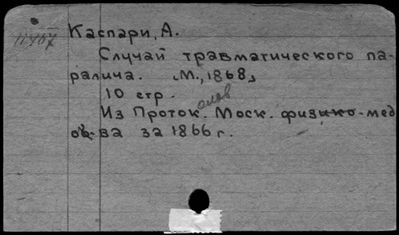 11467
Каспари, А.
Случай травматического па-
ралича. М., 1868,
10 стр.
Из Проток.олов Моск. физико-мед
об-ва за 1866 г.